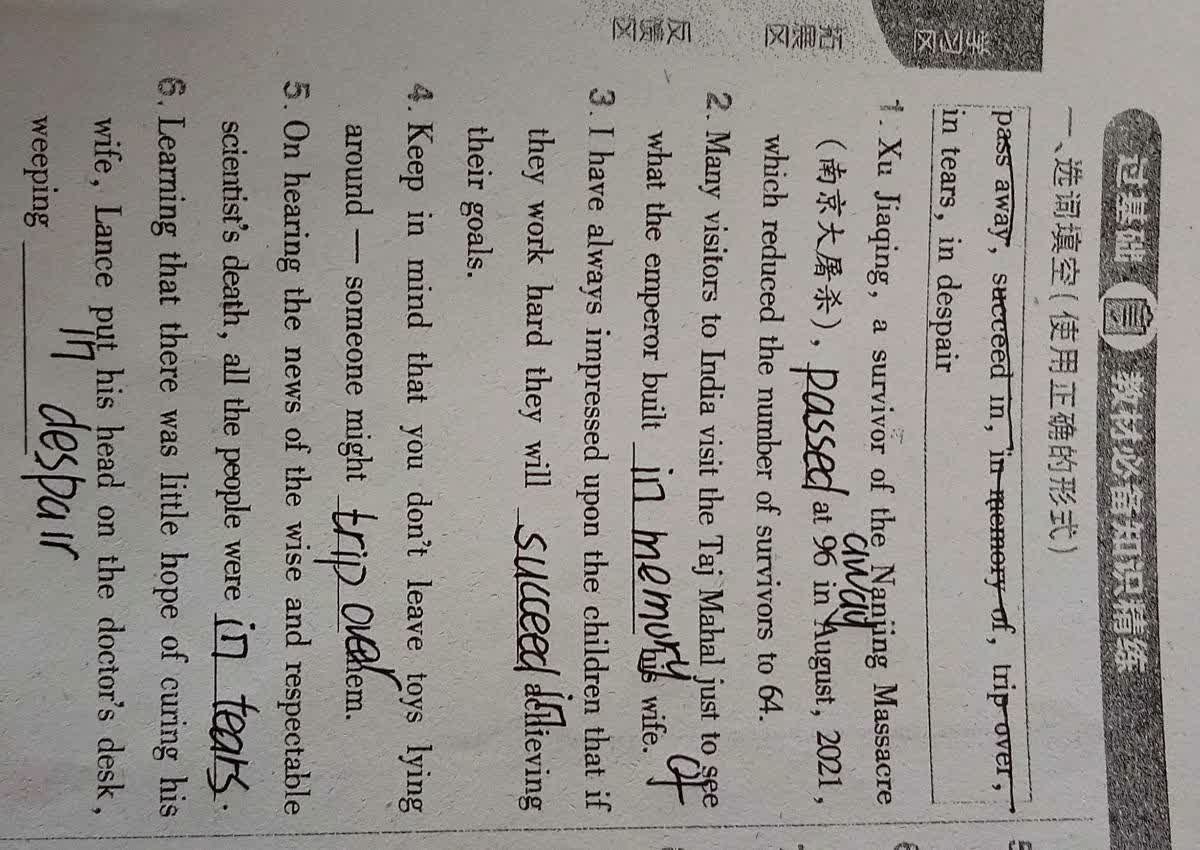 学习区
拓展区
反馈区
过基础 教材必备知识精练
一、选词填空(使用正确的形式)
pass away, succeed in, in memory of, trip over,
in tears, in despair
1. Xu Jiaqing, a survivor of the Nanjing Massacre
(南京大屠杀), passed away at 96 in August, 2021,
which reduced the number of survivors to 64.
2. Many visitors to India visit the Taj Mahal just to see
what the emperor built in memory of his wife.
3. I have always impressed upon the children that if
they work hard they will succeed in achieving
their goals.
4. Keep in mind that you don't leave toys lying
around — someone might trip over them.
5. On hearing the news of the wise and respectable
scientist's death, all the people were in tears.
6. Learning that there was little hope of curing his
wife, Lance put his head on the doctor's desk,
weeping in despair